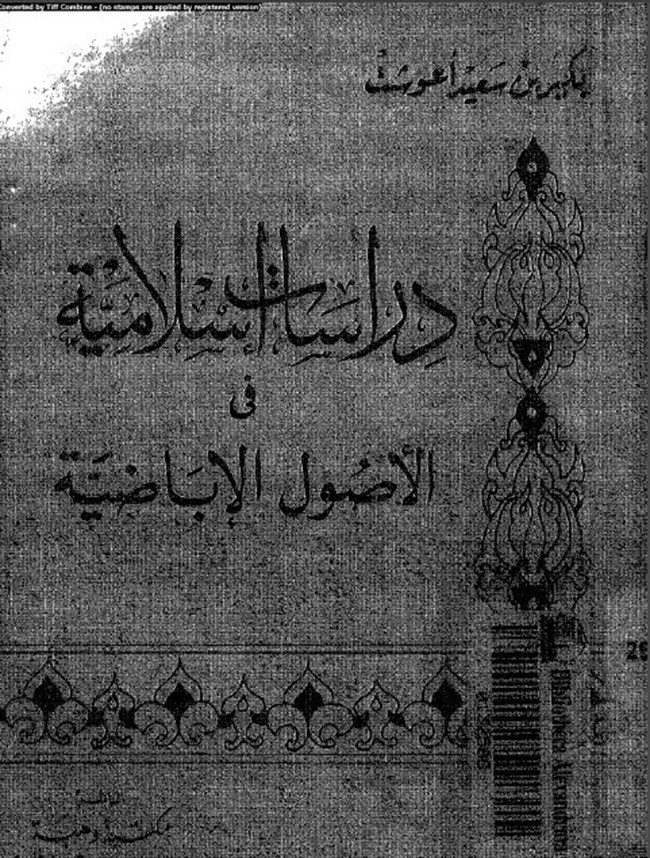 Converted by Tiff Combine - (no stamps are applied by registered version)
بكير بن سعيد أعوشت
دِراسَات إسْلاميَّة
فى
الأصُول الإبَاضيَّة
Bibliotheca Alexandrina
مكتبة وهبة